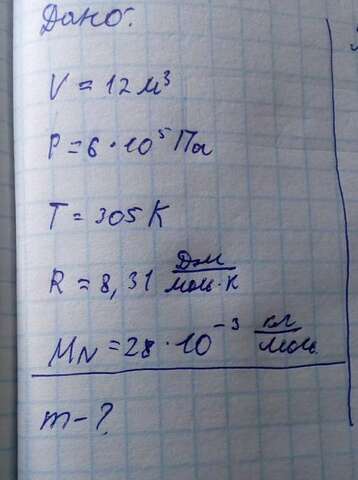 Дано:
V = 12 м³
P = 6 · 10⁵ Па
T = 305 K
R = 8,31 Дж/моль·К
M_N = 28 · 10⁻³ кг/моль
m - ?